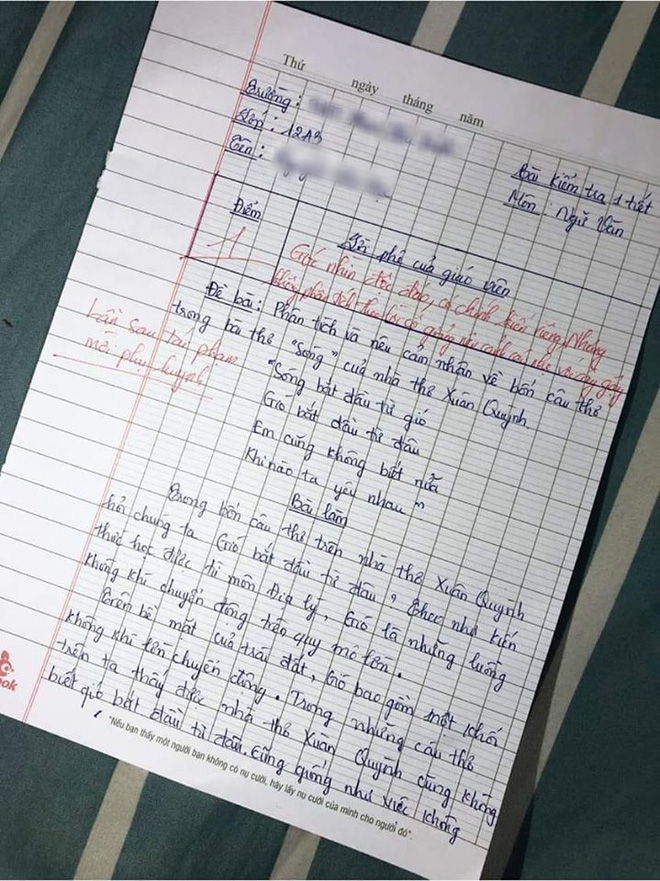 Thứ ngày tháng năm
Trường:
Lớp: 12A3
Tên:
Bài kiểm tra 1 tiết
Môn: Ngữ Văn
Điểm
Lời phê của giáo viên
1
Góc nhìn độc đáo, có chính kiến riêng. Nhưng
Lần sau tái phạm
mời phụ huynh
Đề bài: Phân tích và nêu cảm nhận về bốn câu thơ
trong bài thơ "Sóng" của nhà thơ Xuân Quỳnh
"Sóng bắt đầu từ gió
Gió bắt đầu từ đâu
Em cũng không biết nữa
Khi nào ta yêu nhau"
Bài làm
Trong bốn câu thơ trên nhà thơ Xuân Quỳnh
hỏi chúng ta Gió bắt đầu từ đâu, theo như kiến
thức học được từ môn Địa lý, Gió là những luồng
không khí chuyển động trên quy mô lớn.
Trên bề mặt của trái đất, Gió bao gồm một khối
không khí lớn chuyển động. Trong những câu thơ
trên ta thấy được nhà thơ Xuân Quỳnh cũng không
biết gió bắt đầu từ đâu. Cũng giống như việc không
"Nếu bạn thấy một người bạn không có nụ cười, hãy lấy nụ cười của mình cho người đó".
ok